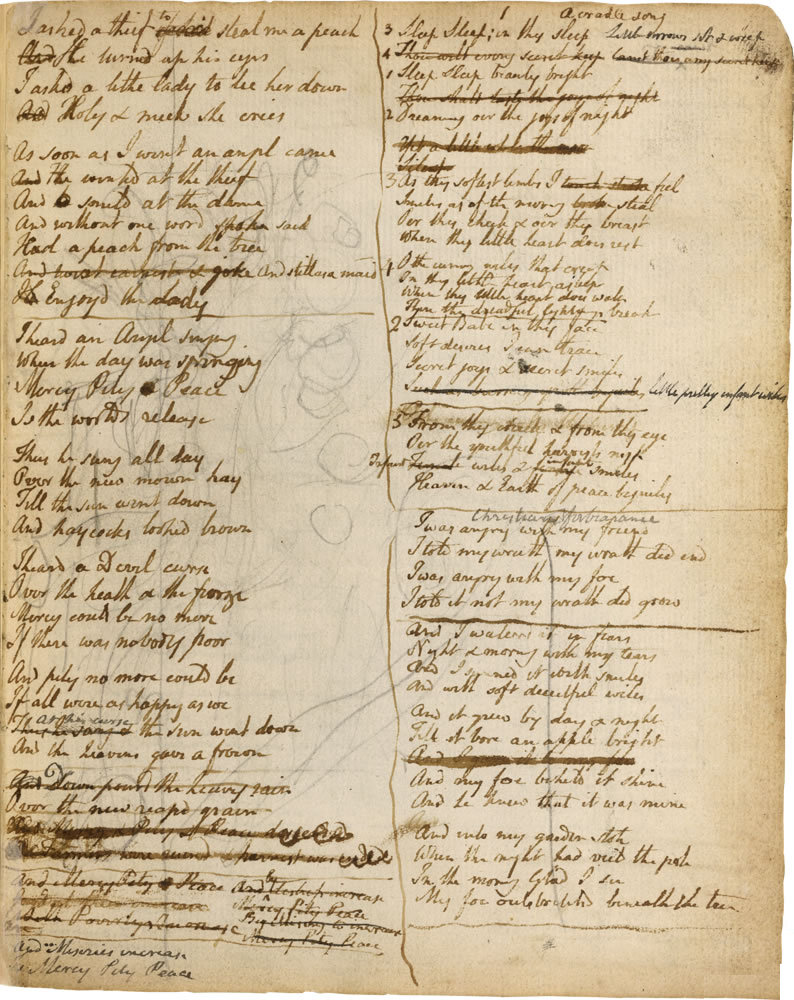 I asked a thief to steal me a peach
And He turnd up his eyes
I askd a lithe lady to lie her down
And Holy & meek she cries

As soon as I went an angel came
And He wink'd at the thief
And smild at the dame
And without one word spoke said
Had a peach from the tree
And twixt earnest & joke And still as a maid
Enjoyd the lady

I heard an Angel singing
When the day was springing
Mercy Pity & Peace
Is the worlds release

Thus he sung all day
Over the new mown hay
Till the sun went down
And haycocks looked brown

I heard a Devil curse
Over the heath & the furze
Mercy could be no more
If there was nobody poor

And pity no more could be
If all were as happy as we
At his curse
Thus he sang & the sun went down
And the heavens gave a frown

And Down pourd the heavy rain
Over the new reapd grain
And Mercy & Pity & Peace descended
The Farmers were ruind & harvest was ended

And Mercy Pity Peace
And by increase
Mercy Pity Peace
By increase
Both Poverty & Increase
Mercy Pity Peace
And Miseries increase
Mercy Pity Peace

1 A cradle song
3 Sleep Sleep; in thy sleep Little sorrows sit & weep
4 Thou wilt every secret keep Canst thou any secret keep
1 Sleep Sleep beauty bright
Thou shalt taste the joys of night
2 Dreaming oer the joys of night
Yet a little while the
Silent
3 As thy softest limbs I touch feel
Smiles as of the morning steal
Oer thy cheek & oer thy breast
Where thy little heart does rest
4 O the cunning wiles that creep
In thy little heart asleep
When thy little heart does wake
Then the dreadful lightnings break
2 Sweet Babe in thy face
Soft desires I can trace
Secret joys & secret smiles
Such as burning youth beguiles little pretty infant wiles

5 From thy cheek & from thy eye
Oer the youthful harvests nigh
Infant Female wiles & infant smiles
Heaven & Earth of peace beguiles

Christian forbearance
I was angry with my friend
I told my wrath my wrath did end
I was angry with my foe
I told it not my wrath did grow

And I waterd it in fears
Night & morning with my tears
And I sunned it with smiles
And with soft deceitful wiles

And it grew by day & night
Till it bore an apple bright
And
And my foe beheld it shine
And he knew that it was mine

And into my garden stole
When the night had veild the pole
In the morning Glad I see
My foe outstretchd beneath the tree